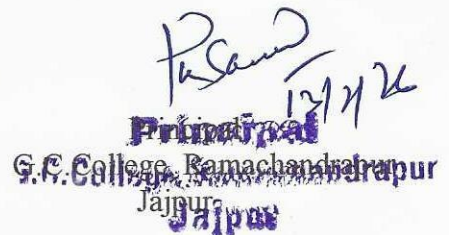 Principal
G.C.College, Ramachandrapur
Jajpur
Principal
G.C. College, Ramachandrapur
Jajpur